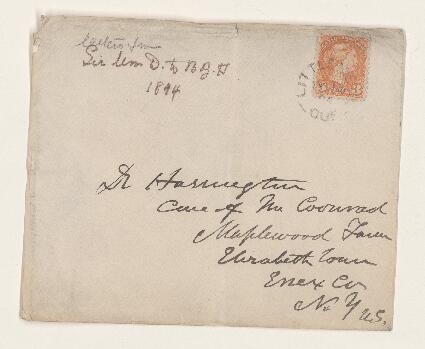 Letters from
Sir Wm D. to B.J.H
1894
Dr Harrington
Care of Mr Coonrad
Maplewood Farm
Elizabeth Town
Essex Co
N. Y U.S.